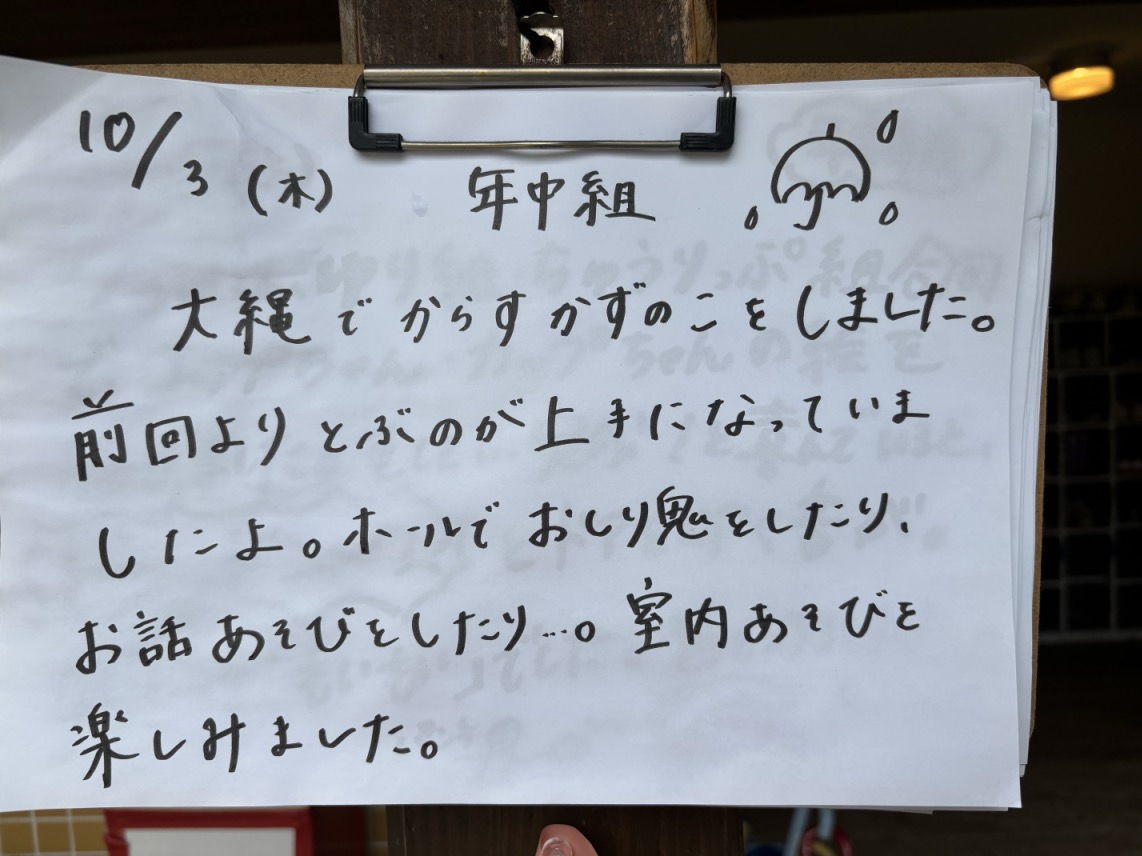 10/3 (木) 年中組
大縄でからすかずのこをしました。
前回よりとぶのが上手になっていま
したよ。ホールでおしり鬼をしたり、
お話あそびをしたり…。室内あそびを
楽しみました。